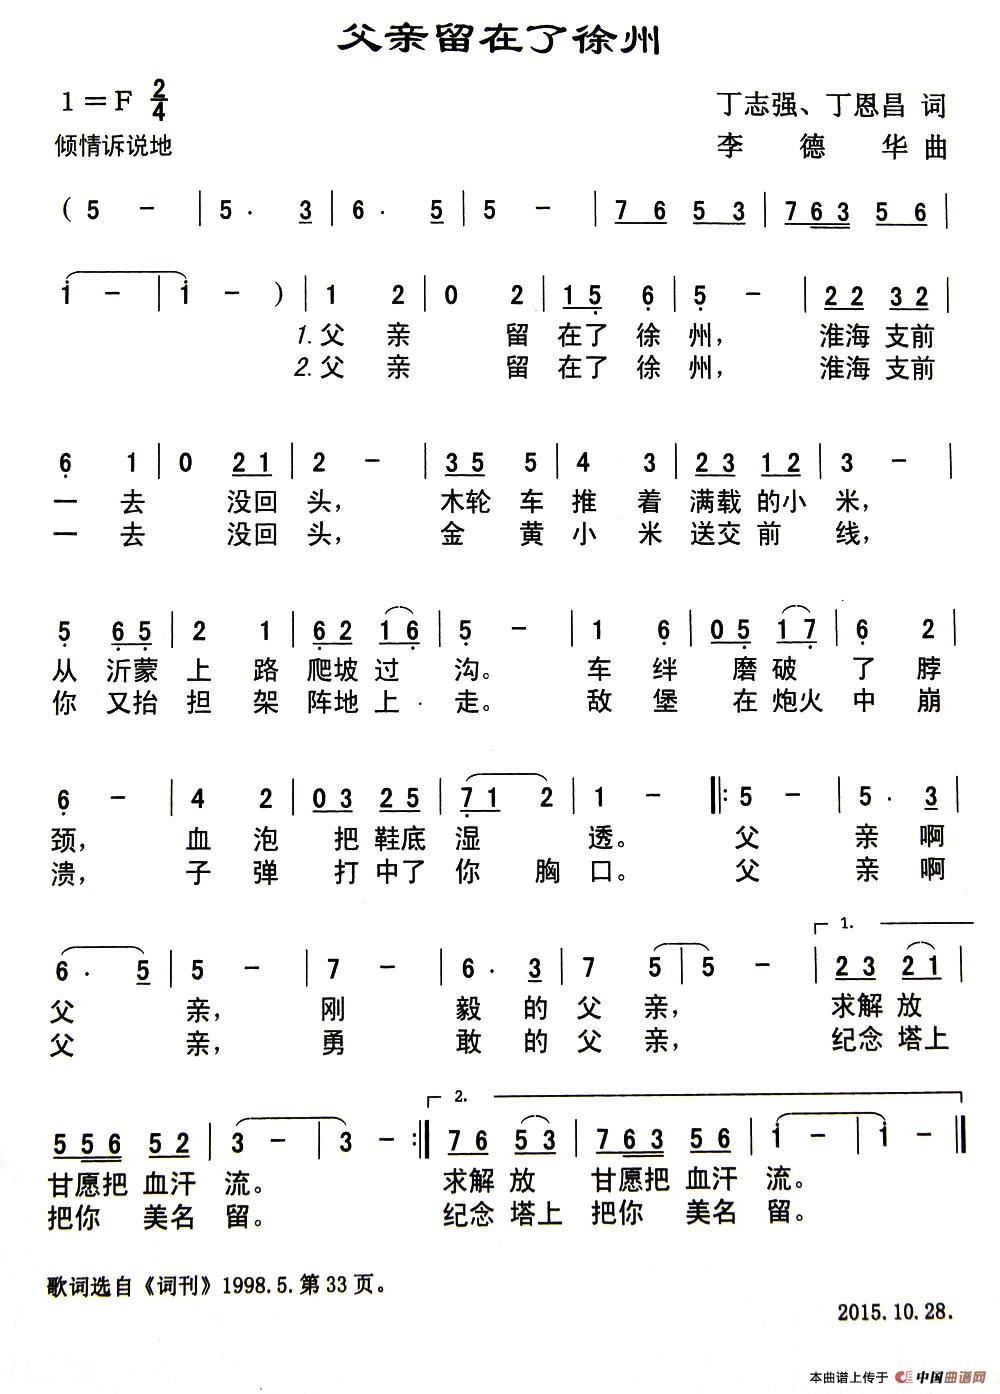 父亲留在了徐州
1＝F 2/4
丁志强、丁恩昌 词
倾情诉说地
李 德 华 曲
( 5 － | 5 · 3 | 6 · 5 | 5 － | 7 6 5 3 | 7 6 3 5 6 |
1 － | 1 － ) | 1 2 | 0 2 | 1 5 6 | 5 － | 2 2 3 2 |
1. 父 亲 留 在了 徐 州， 淮海 支前
2. 父 亲 留 在了 徐 州， 淮海 支前
6 1 | 0 2 1 | 2 － | 3 5 5 | 4 3 | 2 3 1 2 | 3 － |
一 去 没回 头， 木轮 车 推 着 满载 的小 米，
一 去 没回 头， 金 黄 小 米 送交 前 线，
5 6 5 | 2 1 | 6 2 1 6 | 5 － | 1 6 | 0 5 1 7 | 6 2 |
从 沂蒙 上 路 爬坡 过 沟。 车 绊 磨 破 了 脖
你 又抬 担 架 阵地 上 走。 敌 堡 在 炮火 中 崩
6 － | 4 2 | 0 3 2 5 | 7 1 2 | 1 － ‖: 5 － | 5 · 3 |
颈， 血 泡 把 鞋底 湿 透。 父 亲 啊
溃， 子 弹 打 中了 你 胸 口。 父 亲 啊
1.
6 · 5 | 5 － | 7 － | 6 · 3 | 7 5 | 5 － | 2 3 2 1 |
父 亲， 刚 毅 的 父 亲， 求解 放
父 亲， 勇 敢 的 父 亲， 纪念 塔上
2.
5 5 6 5 2 | 3 － | 3 － :‖ 7 6 5 3 | 7 6 3 5 6 | 1 － | 1 － ‖
甘愿把 血汗 流。 求解 放 甘愿把 血汗 流。
把你 美名 留。 纪念 塔上 把你 美名 留。
歌词选自《词刊》1998.5.第33页。
2015.10.28.
本曲谱上传于 中国曲谱网